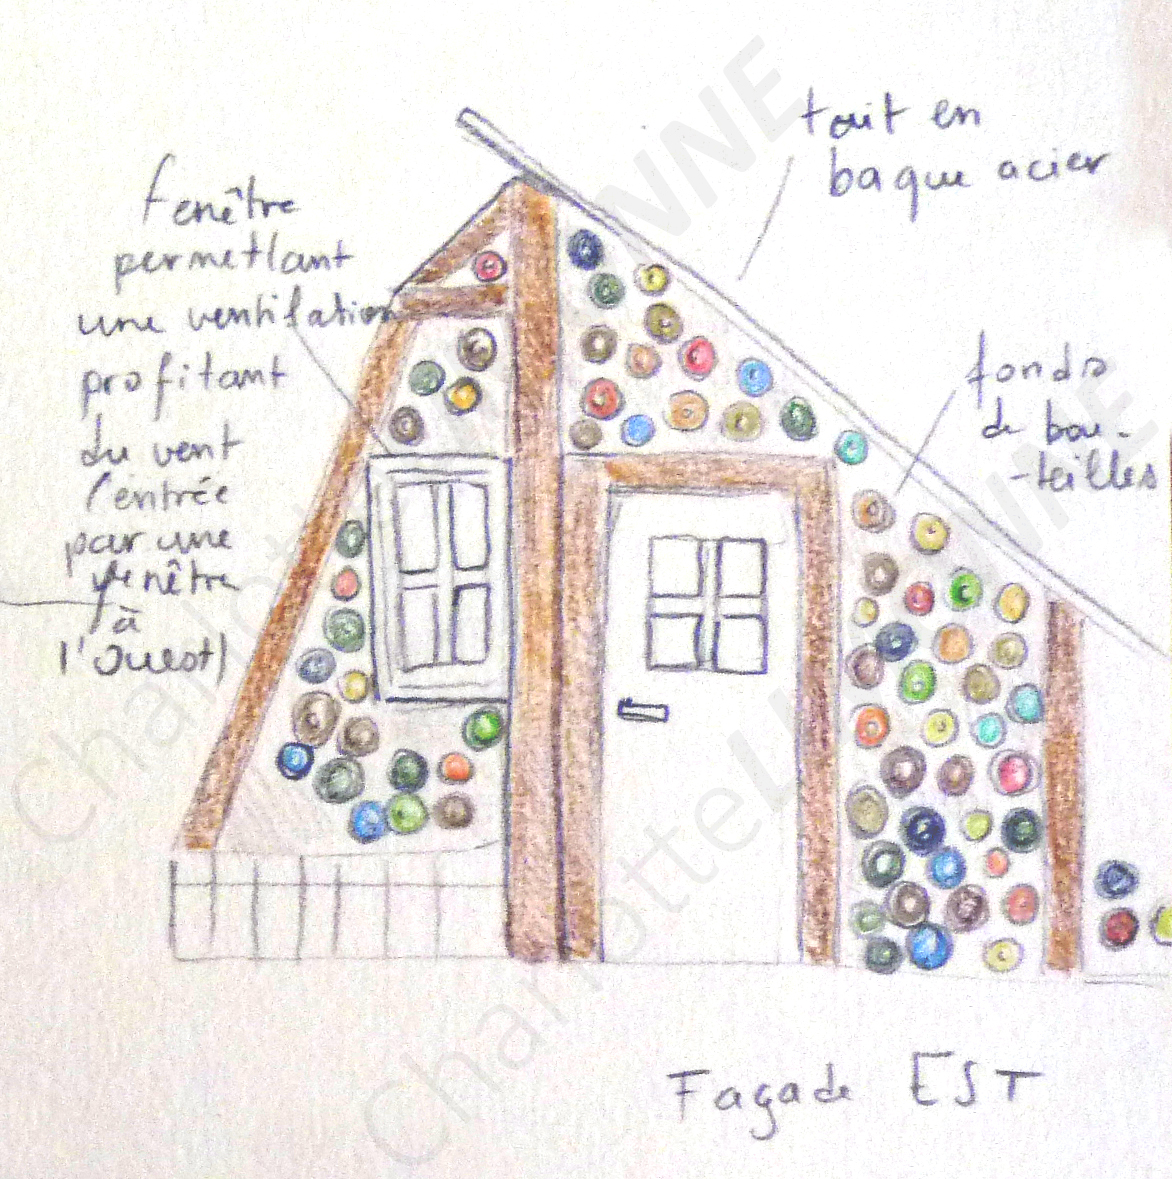 toit en
baque acier
fenêtre
permettant
une ventilation
profitant
du vent
(entrée
par une
fenêtre
à
l'ouest)
fonds
de bou-
-teilles
Façade EST
Charlotte LVNNE